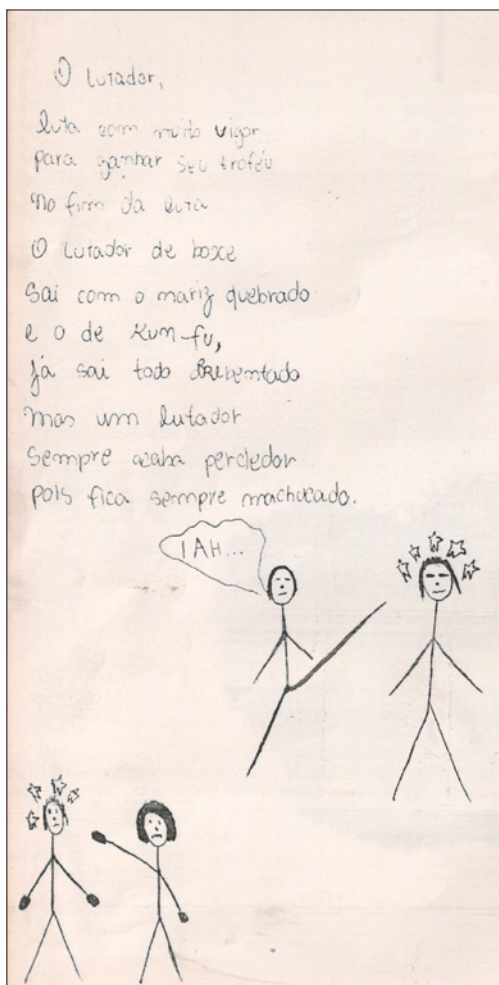 O lutador,
luta com muito vigor
para ganhar seu troféu
No fim da luta
O lutador de boxe
sai com o nariz quebrado
e o de Kum-fu,
já sai todo arrebentado
mas um lutador
sempre acaba perdedor
pois fica sempre machucado.
IAH...